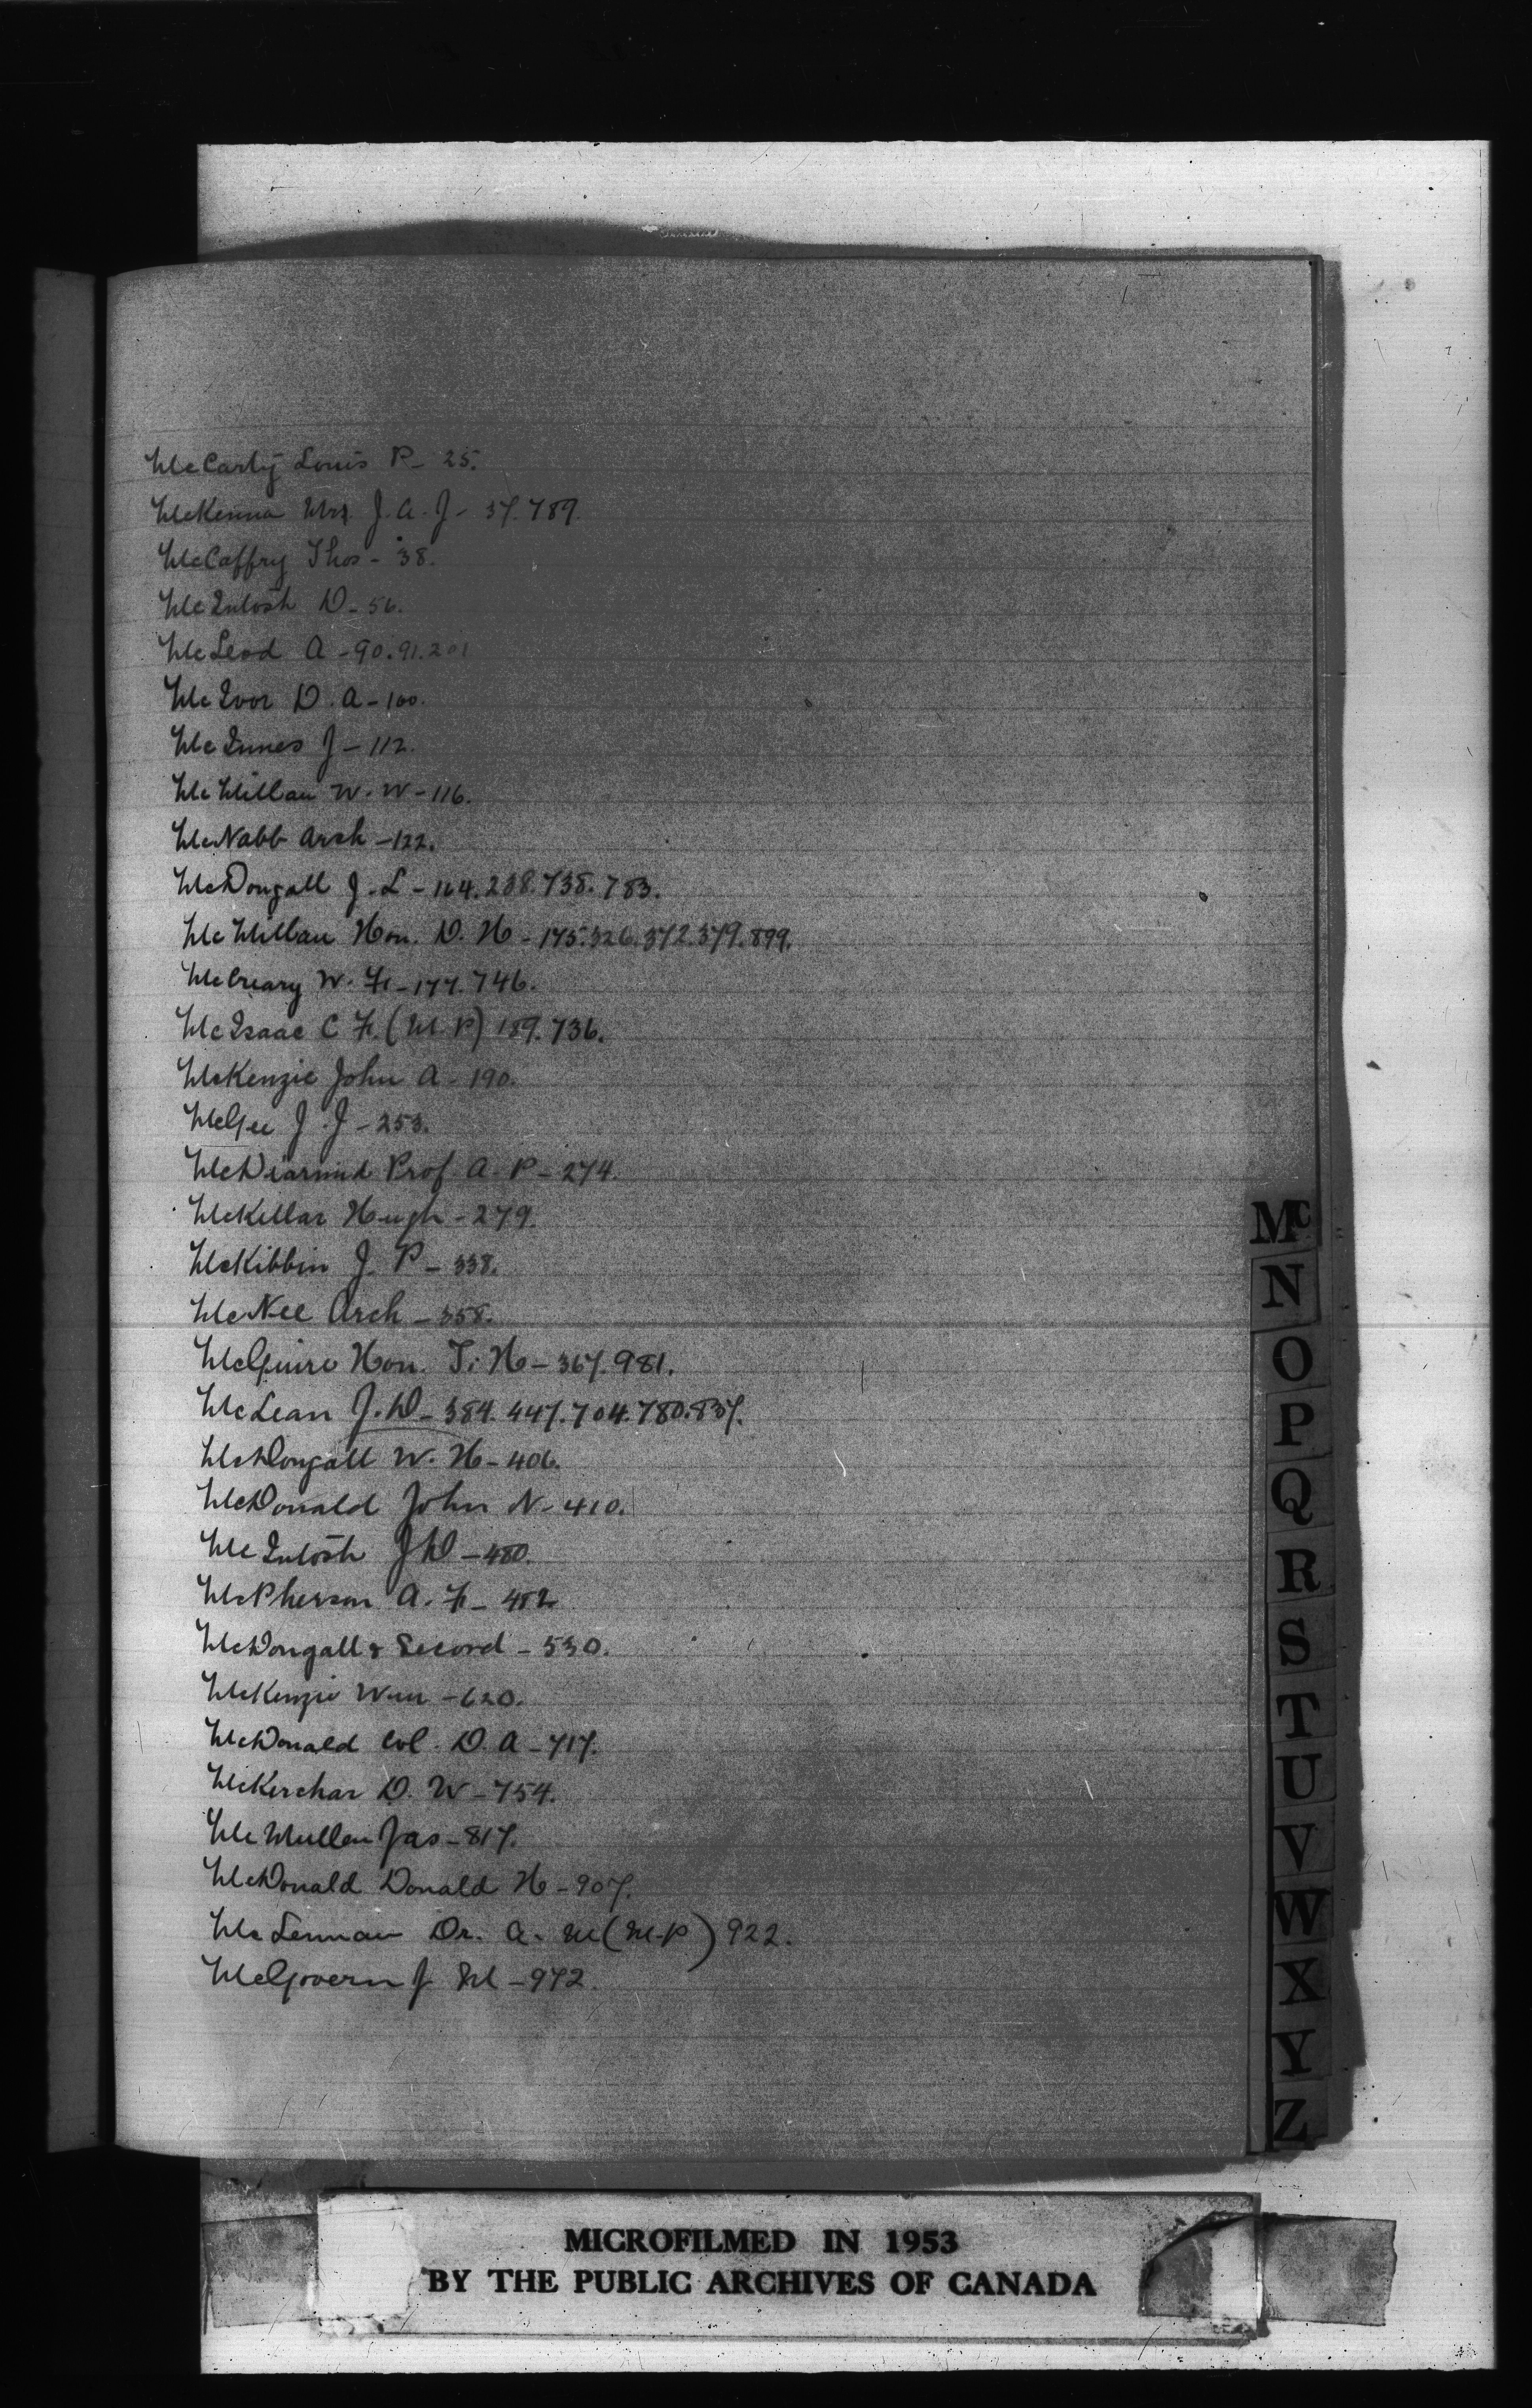 McCarty Louis P - 25.
McKenna Mrs. J. A. J - 37. 789.
McCaffry Thos - 38.
McIntosh D - 56.
McLeod A - 90. 91. 201
McIvor D. A - 100.
McInnes J - 112.
McMillan W. W - 116.
McNabb Arch - 122.
McDougall J. L - 164. 238. 738. 783.
McMillan Hon. D. H - 175. 326. 372. 379. 899.
McCreary W. F. - 177. 746.
McIsaac C F. (M. P) 189. 736.
McKenzie John A - 190.
McGee J. J - 253.
McDiarmid Prof. A. P - 274.
McKellar Hugh - 279.
McKibbin J. P - 338.
McNee Arch - 358.
McGuire Hon. T. H - 367. 981.
McLean J. D - 384. 447. 704. 780. 837.
McDougall W. H - 406.
McDonald John N - 410.
McIntosh J D - 480.
McPherson A. F. - 482
McDougall & Secord - 530.
McKenzie Wm - 620.
McDonald Col. D. A - 717.
McKerchar D. W - 754.
McMullen Jas - 817.
McDonald Donald H - 907.
McLennan Dr. A. M (M.P) 922.
McGovern J M - 972.
Mc
N
O
P
Q
R
S
T
U
V
W
X
Y
Z
MICROFILMED IN 1953
BY THE PUBLIC ARCHIVES OF CANADA